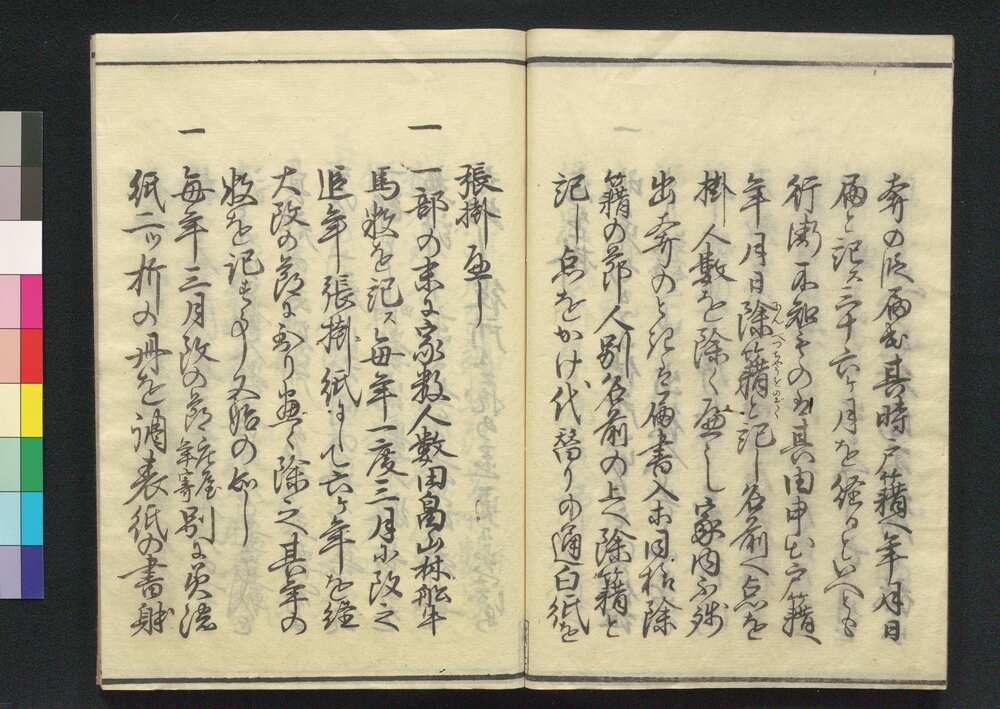 奔の侭届出其時戸籍へ年月日
届と記ス三十六ヶ月を経るといへとも
行衛不知ものハ其由申出戸籍へ
年月日除籍と記し名前へ点を
掛人数を除く
出奔のときハ届書入
籍の節人別名前の上へ除籍と
記し点をかけ代替りの通白紙を
張掛へし
一 一部の末に家数人数田畠山林船牛
馬数を記ス毎年一度三月に改之
追年張掛紙にして六ヶ年を経
大改の節に至り悉く除之其年の
数を記すへし又始の如し
一 毎年三月改の節庄屋年寄別に
紙二ッ折の冊を調表紙の書